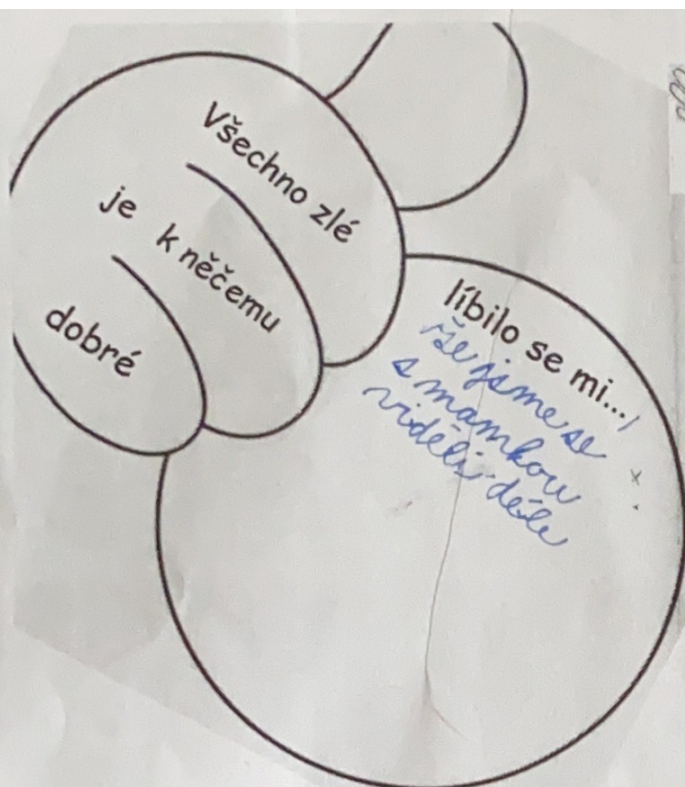 Všechno zlé
je k něčemu
dobré
líbilo se mi...,
že jsme se
s mamkou
viděli déle